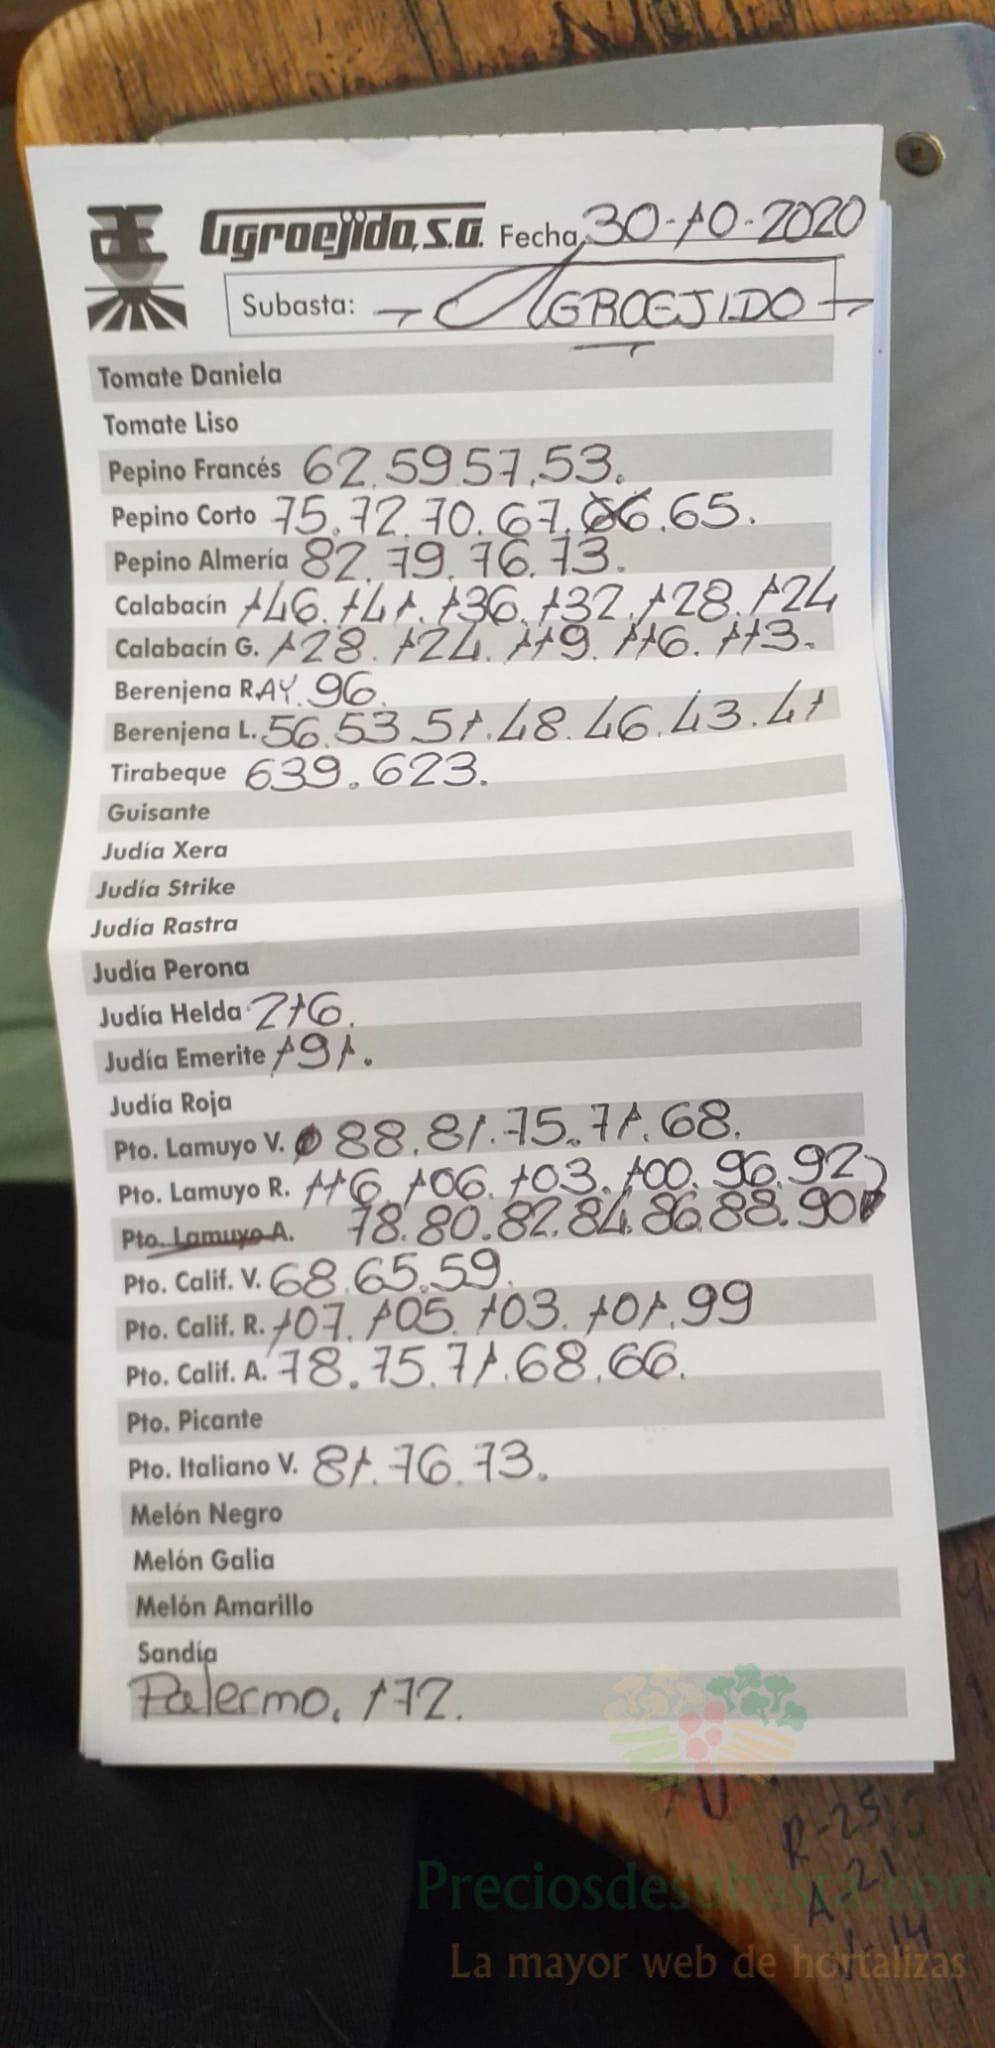 Æ Agroejido, S.A. Fecha 30-10-2020
Subasta: AGROEJIDO
Tomate Daniela
Tomate Liso
Pepino Francés 62.59.57.53.
Pepino Corto 75.72.70.67.66.65.
Pepino Almería 82.79.76.73.
Calabacín 146.141.136.132.128.124
Calabacín G. 128.124.119.116.113.
Berenjena RAY. 96.
Berenjena L. 56.53.51.48.46.43.41
Tirabeque 639.623.
Guisante
Judía Xera
Judía Strike
Judía Rastra
Judía Perona
Judía Helda 216.
Judía Emerite 191.
Judía Roja
Pto. Lamuyo V. 88.81.75.71.68.
Pto. Lamuyo R. 116.106.103.100.96.92
Pto. Lamuyo A. 78.80.82.84.86.88.90
Pto. Calif. V. 68.65.59.
Pto. Calif. R. 107.105.103.101.99
Pto. Calif. A. 78.75.71.68.66.
Pto. Picante
Pto. Italiano V. 81.76.73.
Melón Negro
Melón Galia
Melón Amarillo
Sandía
Palermo. 172.
R-25
A-21
V-14
Preciosdesubasta.com
La mayor web de hortalizas